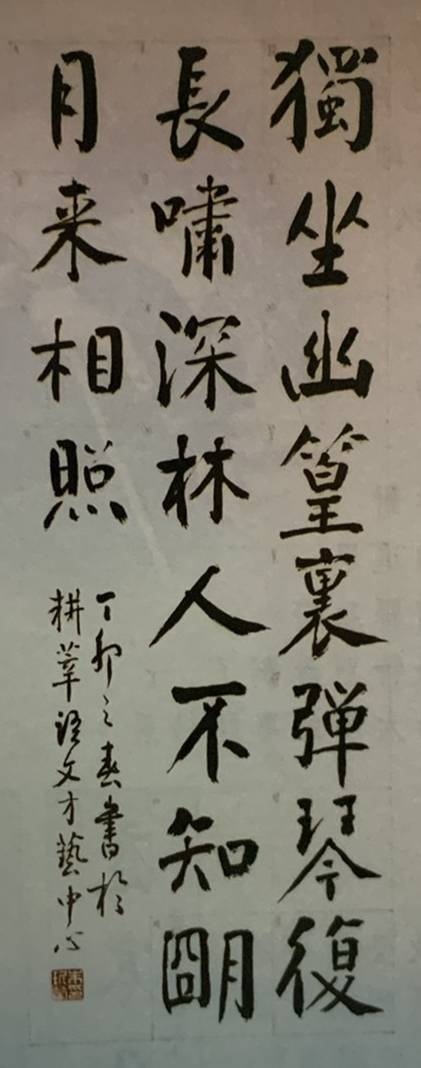 獨坐幽篁裏彈琴復
長嘯深林人不知朙
月来相照
丁卯之春書於
耕莘語文才藝中心